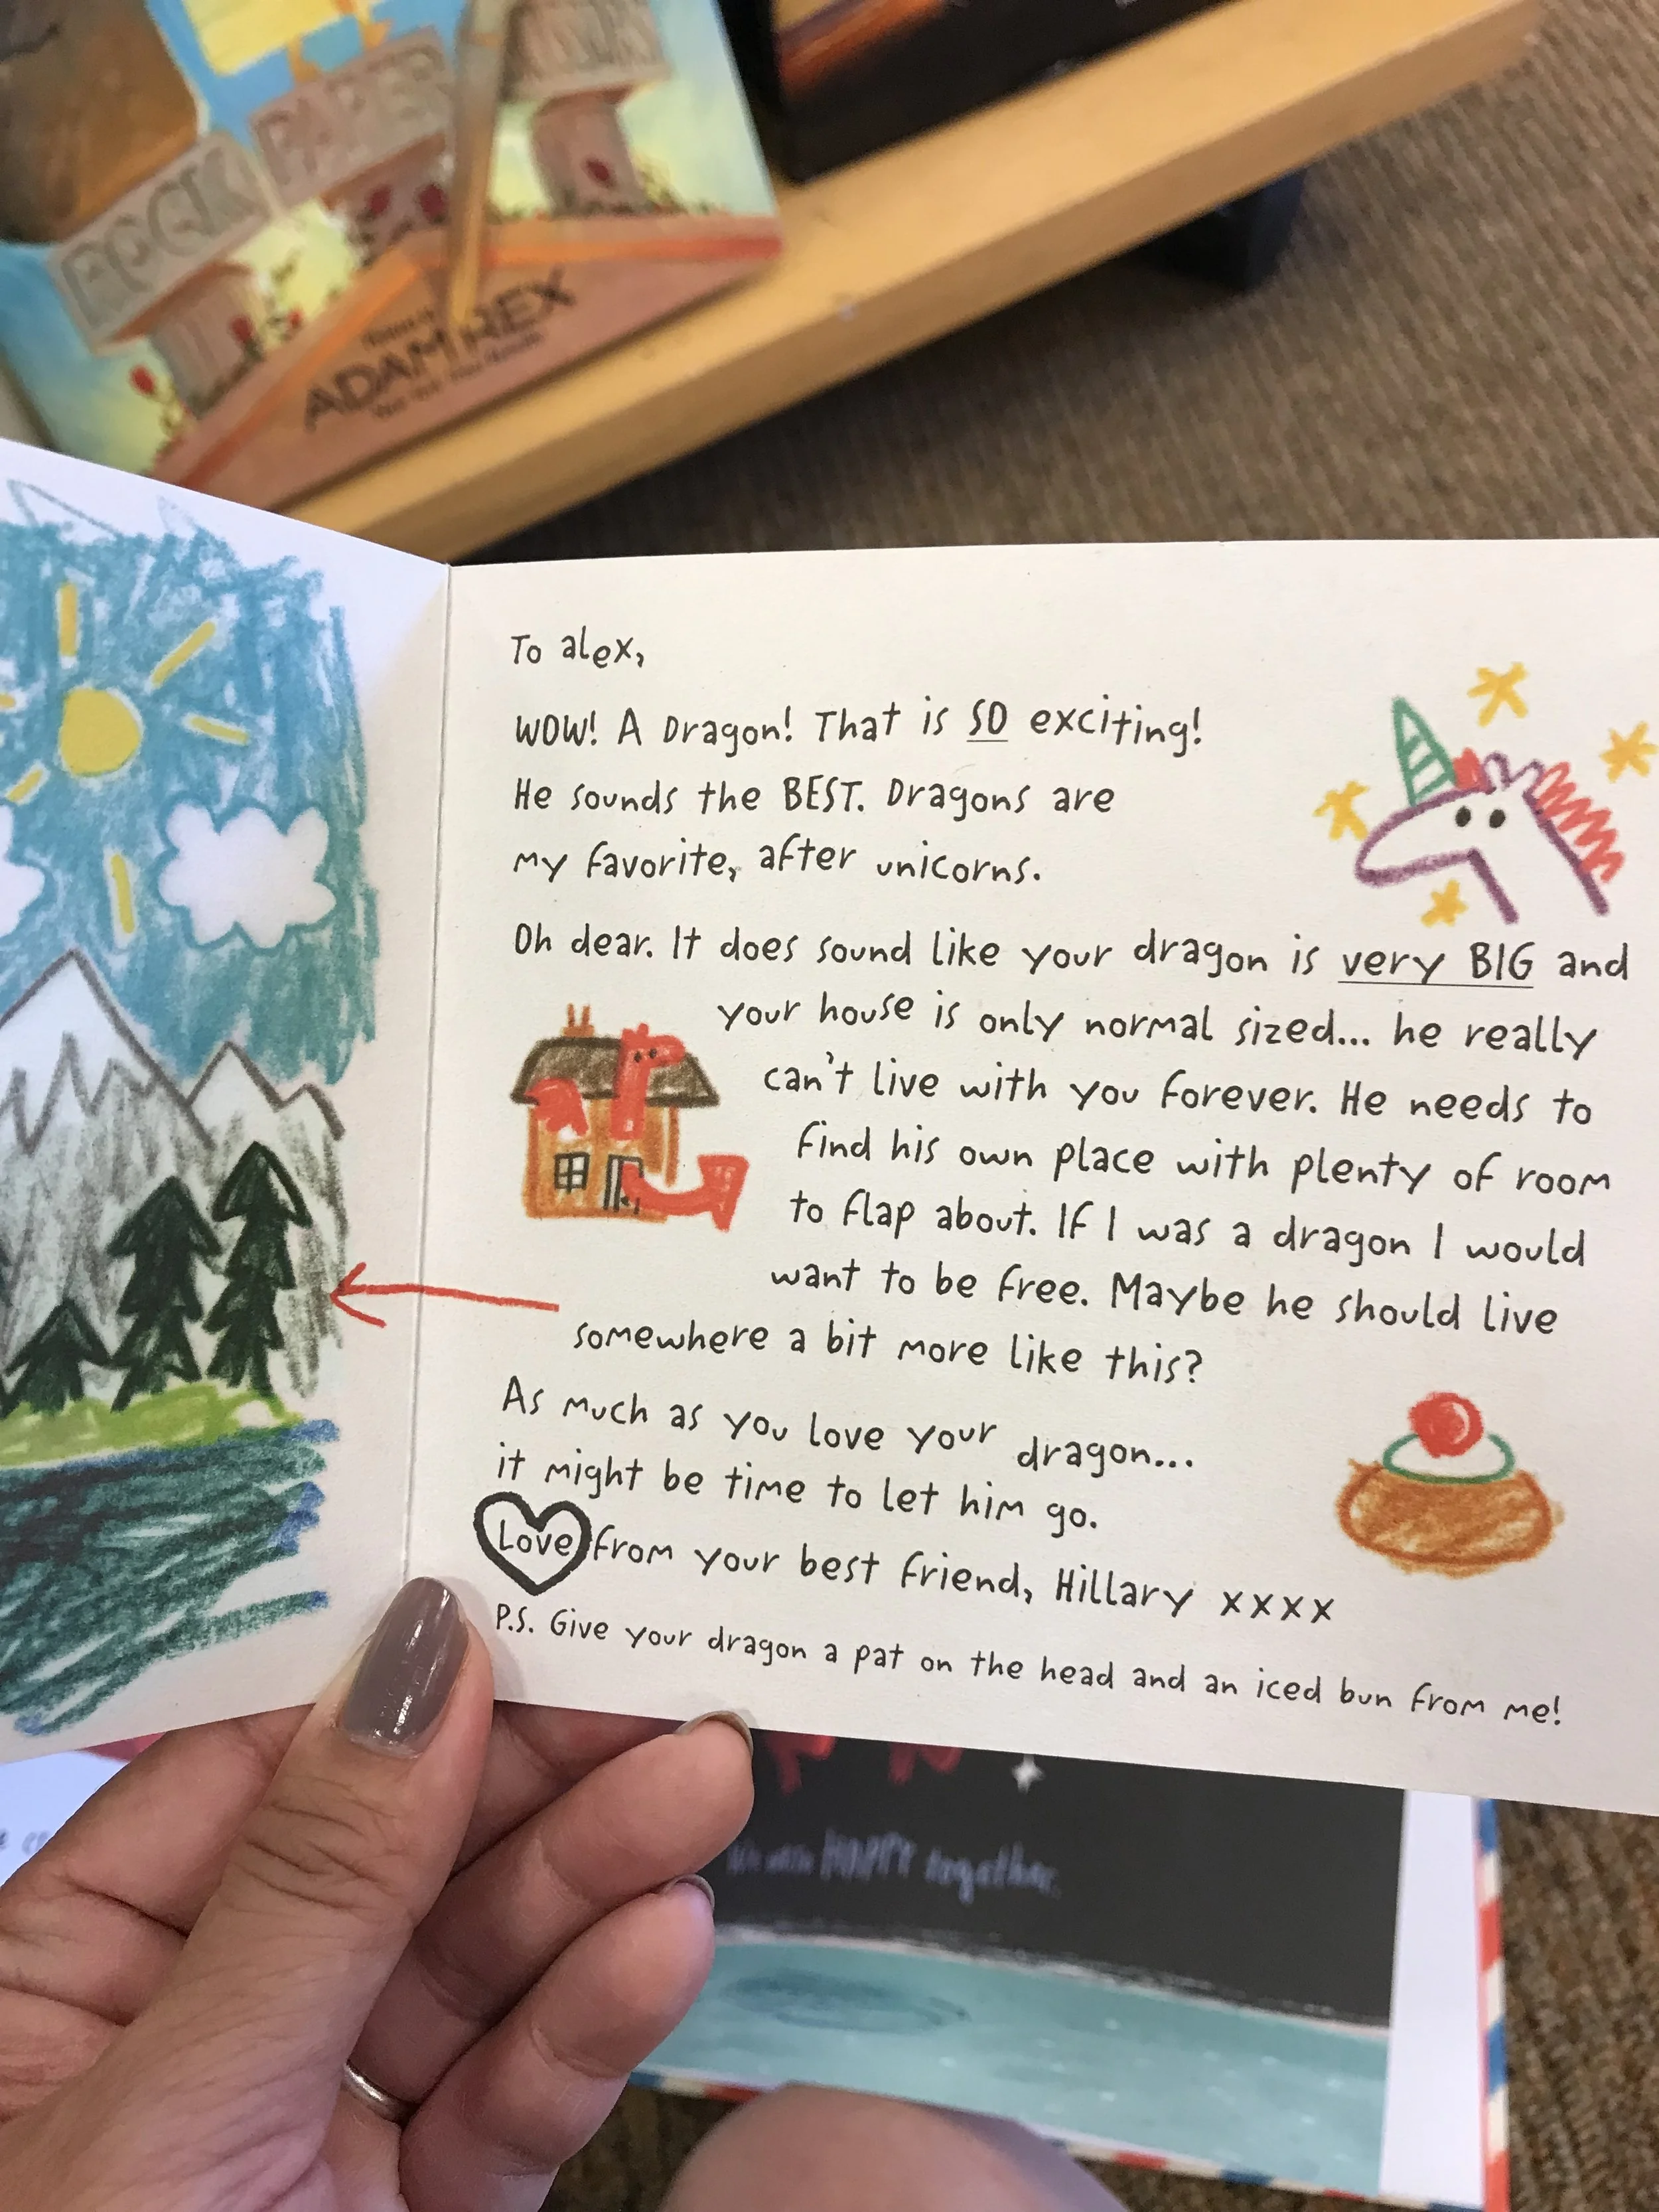 ROCK
PAPER
ADAM REX
To alex,
WOW! A Dragon! That is SO exciting!
He sounds the BEST. Dragons are
my favorite, after unicorns.
Oh dear. It does sound like your dragon is very BIG and
your house is only normal sized... he really
can't live with you forever. He needs to
find his own place with plenty of room
to flap about. If I was a dragon I would
want to be free. Maybe he should live
somewhere a bit more like this?
As much as you love your dragon...
it might be time to let him go.
Love from your best friend, Hillary xxxx
P.S. Give your dragon a pat on the head and an iced bun from me!
HAPPY together.